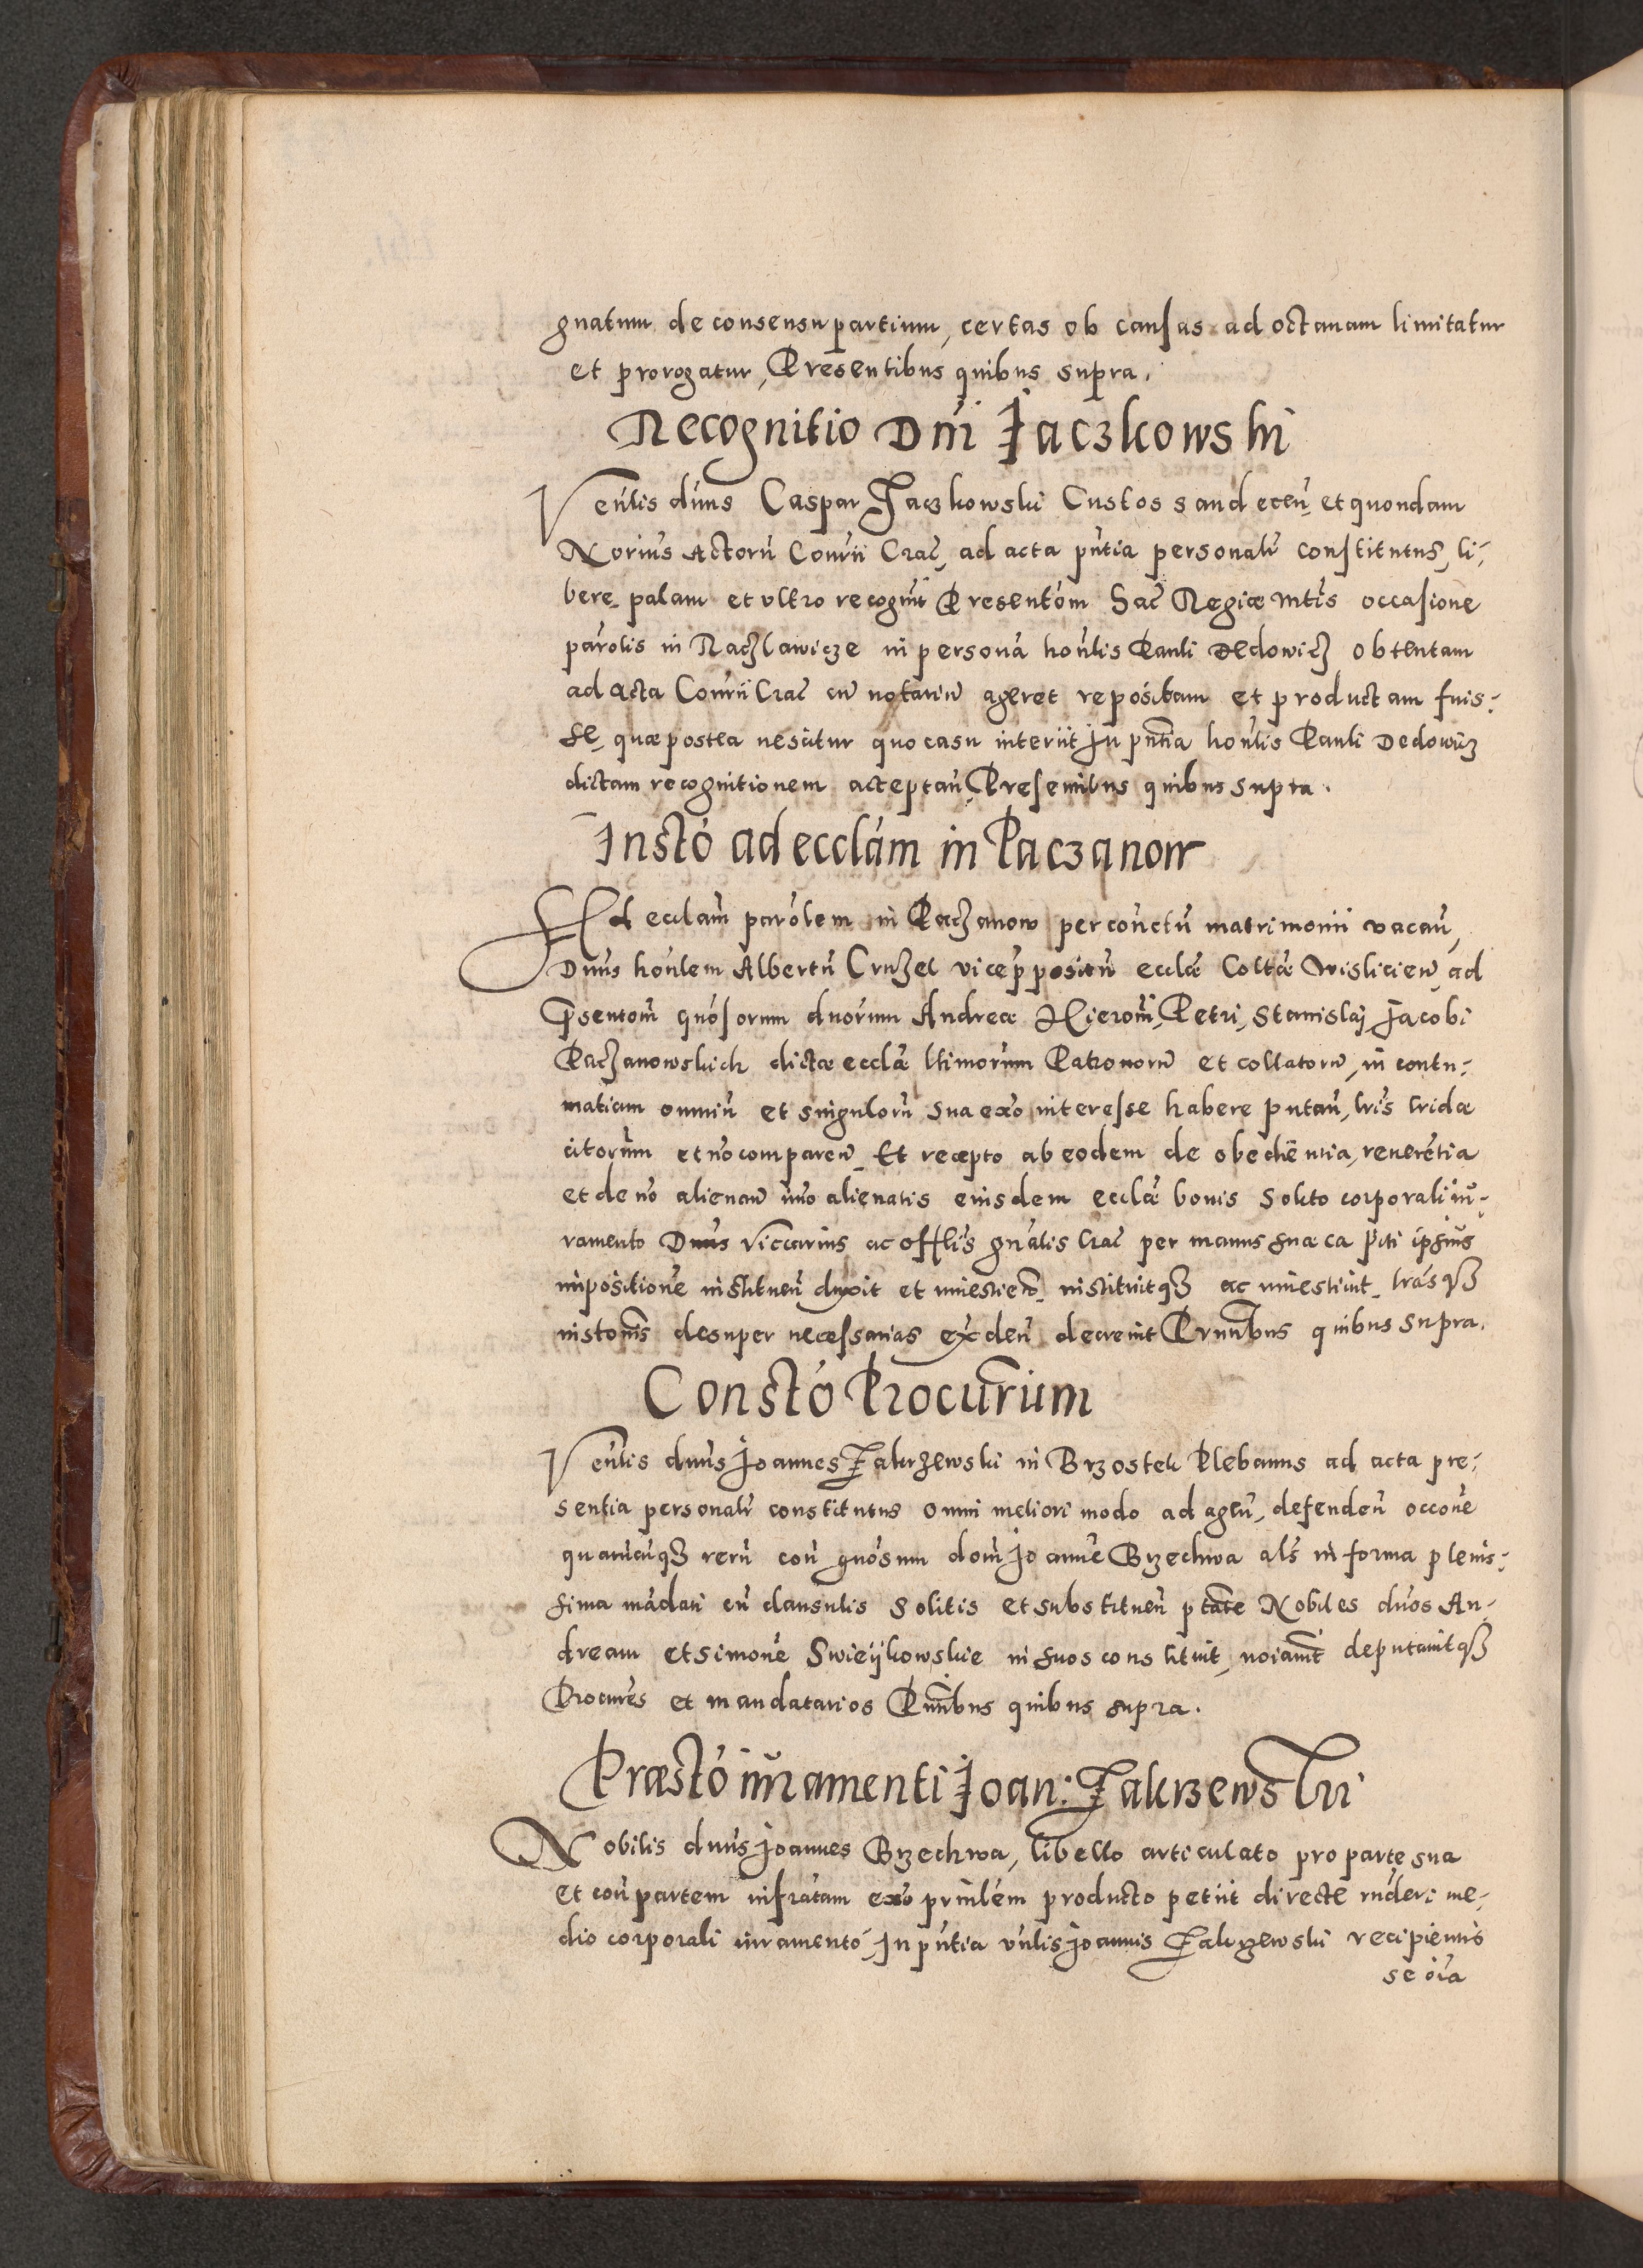 gnatum de consensu partium, certas ob causas ad octavam limitatur
et prorogatur, Presentibus quibus supra.
Recognitio Dni Jaczkowski
Venlis dnus Caspar Jaczkowski Custos sandecen et quondam
Norius Actoru Consrii Crac, ad acta pntia personalr constitutus, li-
bere palam et ultro recognit Presentom Sac Regiæ Mtis occasione
parolis in Raczlawicze in persona honlis Pauli Dedowicz obtentam
ad acta Consrii Crac cu notariu ageret repositam et productam fuis-
se, quæ postea nescitur quo casu interiit In pntia honlis Pauli Dedowicz
dictam recognitionem acceptan Presentibus quibus supra.
Insto ad ecclam in Paczanow
Ad ecclam parolem in Paczanow per contctu matrimonii vacan,
Dnus honlem Albertu Cruzel vicepræpositu ecclæ Coltæ Wislicien ad
Psentom gnosorum dnorum Andreæ Hieroni, Petri, Stanislaj Jacobi
Paczanowskich dictæ ecclæ ltimorum Patronoru et collatoru, in contu-
matiam omniu et singuloru sua exo interesse habere putan, lris cridæ
citorum et no comparen Et recepto ab eodem de obedientia, reverentia
et de no alienan imo alienatis eiusdem ecclæ bonis solito corporali iu-
ramento Dnus Viccarius ac offlis gnalis Crac per manus suæ capiti ipsius
impositione instituen duxit et investien, instituitqz ac investivit, lrasqz
instonis desuper necessarias exden decrevit Pruntbus quibus supra.
Consto Procurrium
Venlis dnus Joannes Zakrzewski in Brzostek Plebanus ad acta pre-
sentia personalr constitutus omni meliori modo ad agen, defenden occone
quarucuqz reru con gnosum dom Joanne Brzechwa als in forma plenis-
sima madati cu clausulis solitis et substituen ptate Nobiles dnos An-
dream et simone Swieykowskie in suos constituit, noiavit deputavitqz
Procures et mandatarios Pntibus quibus supra.
Præsto iuramenti Joan: Zakrzewski
Nobilis dnus Joannes Brzechwa, libello articulato pro parte sua
et con partem infratam exo prinlem producto petiit directe rnderi me-
dio corporali iuramento, In pntia vnlis Joannis Zakrzewski recipientis
se oia